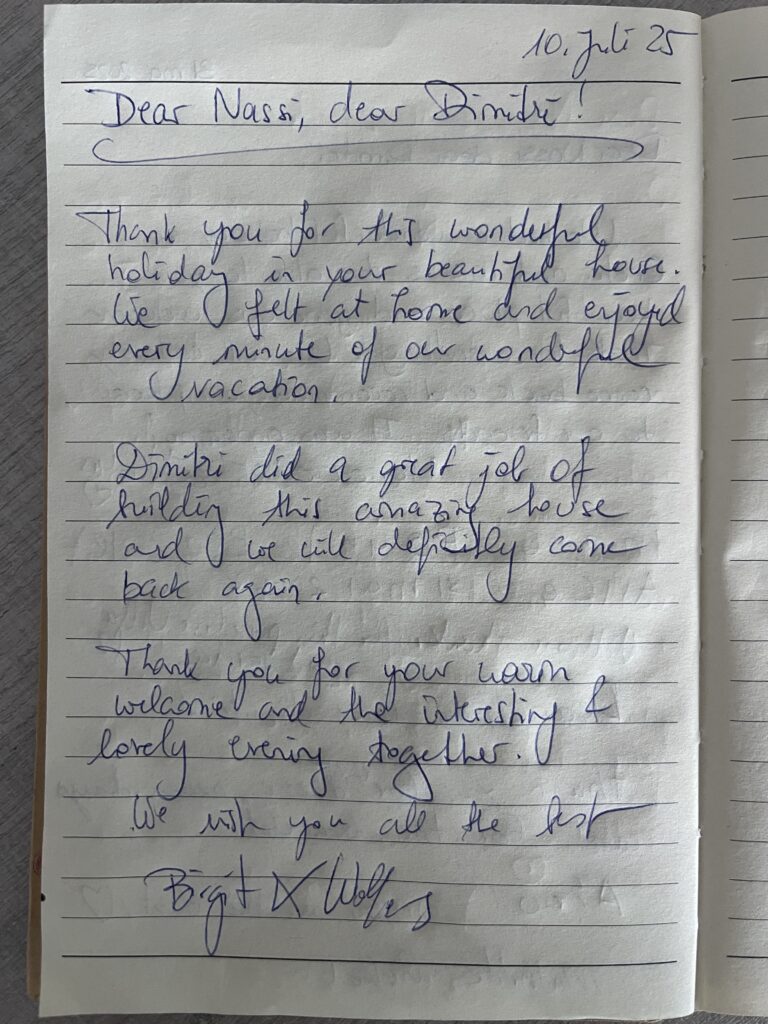 10. Juli 25
Dear Nassi, dear Dimitri!
Thank you for this wonderful
holiday in your beautiful house.
We felt at home and enjoyed
every minute of our wonderful
vacation.
Dimitri did a great job of
building this amazing house
and we will definitly come
back again.
Thank you for your warm
welcome and the interesting &
lovely evening together.
We wish you all the best
Birgit &